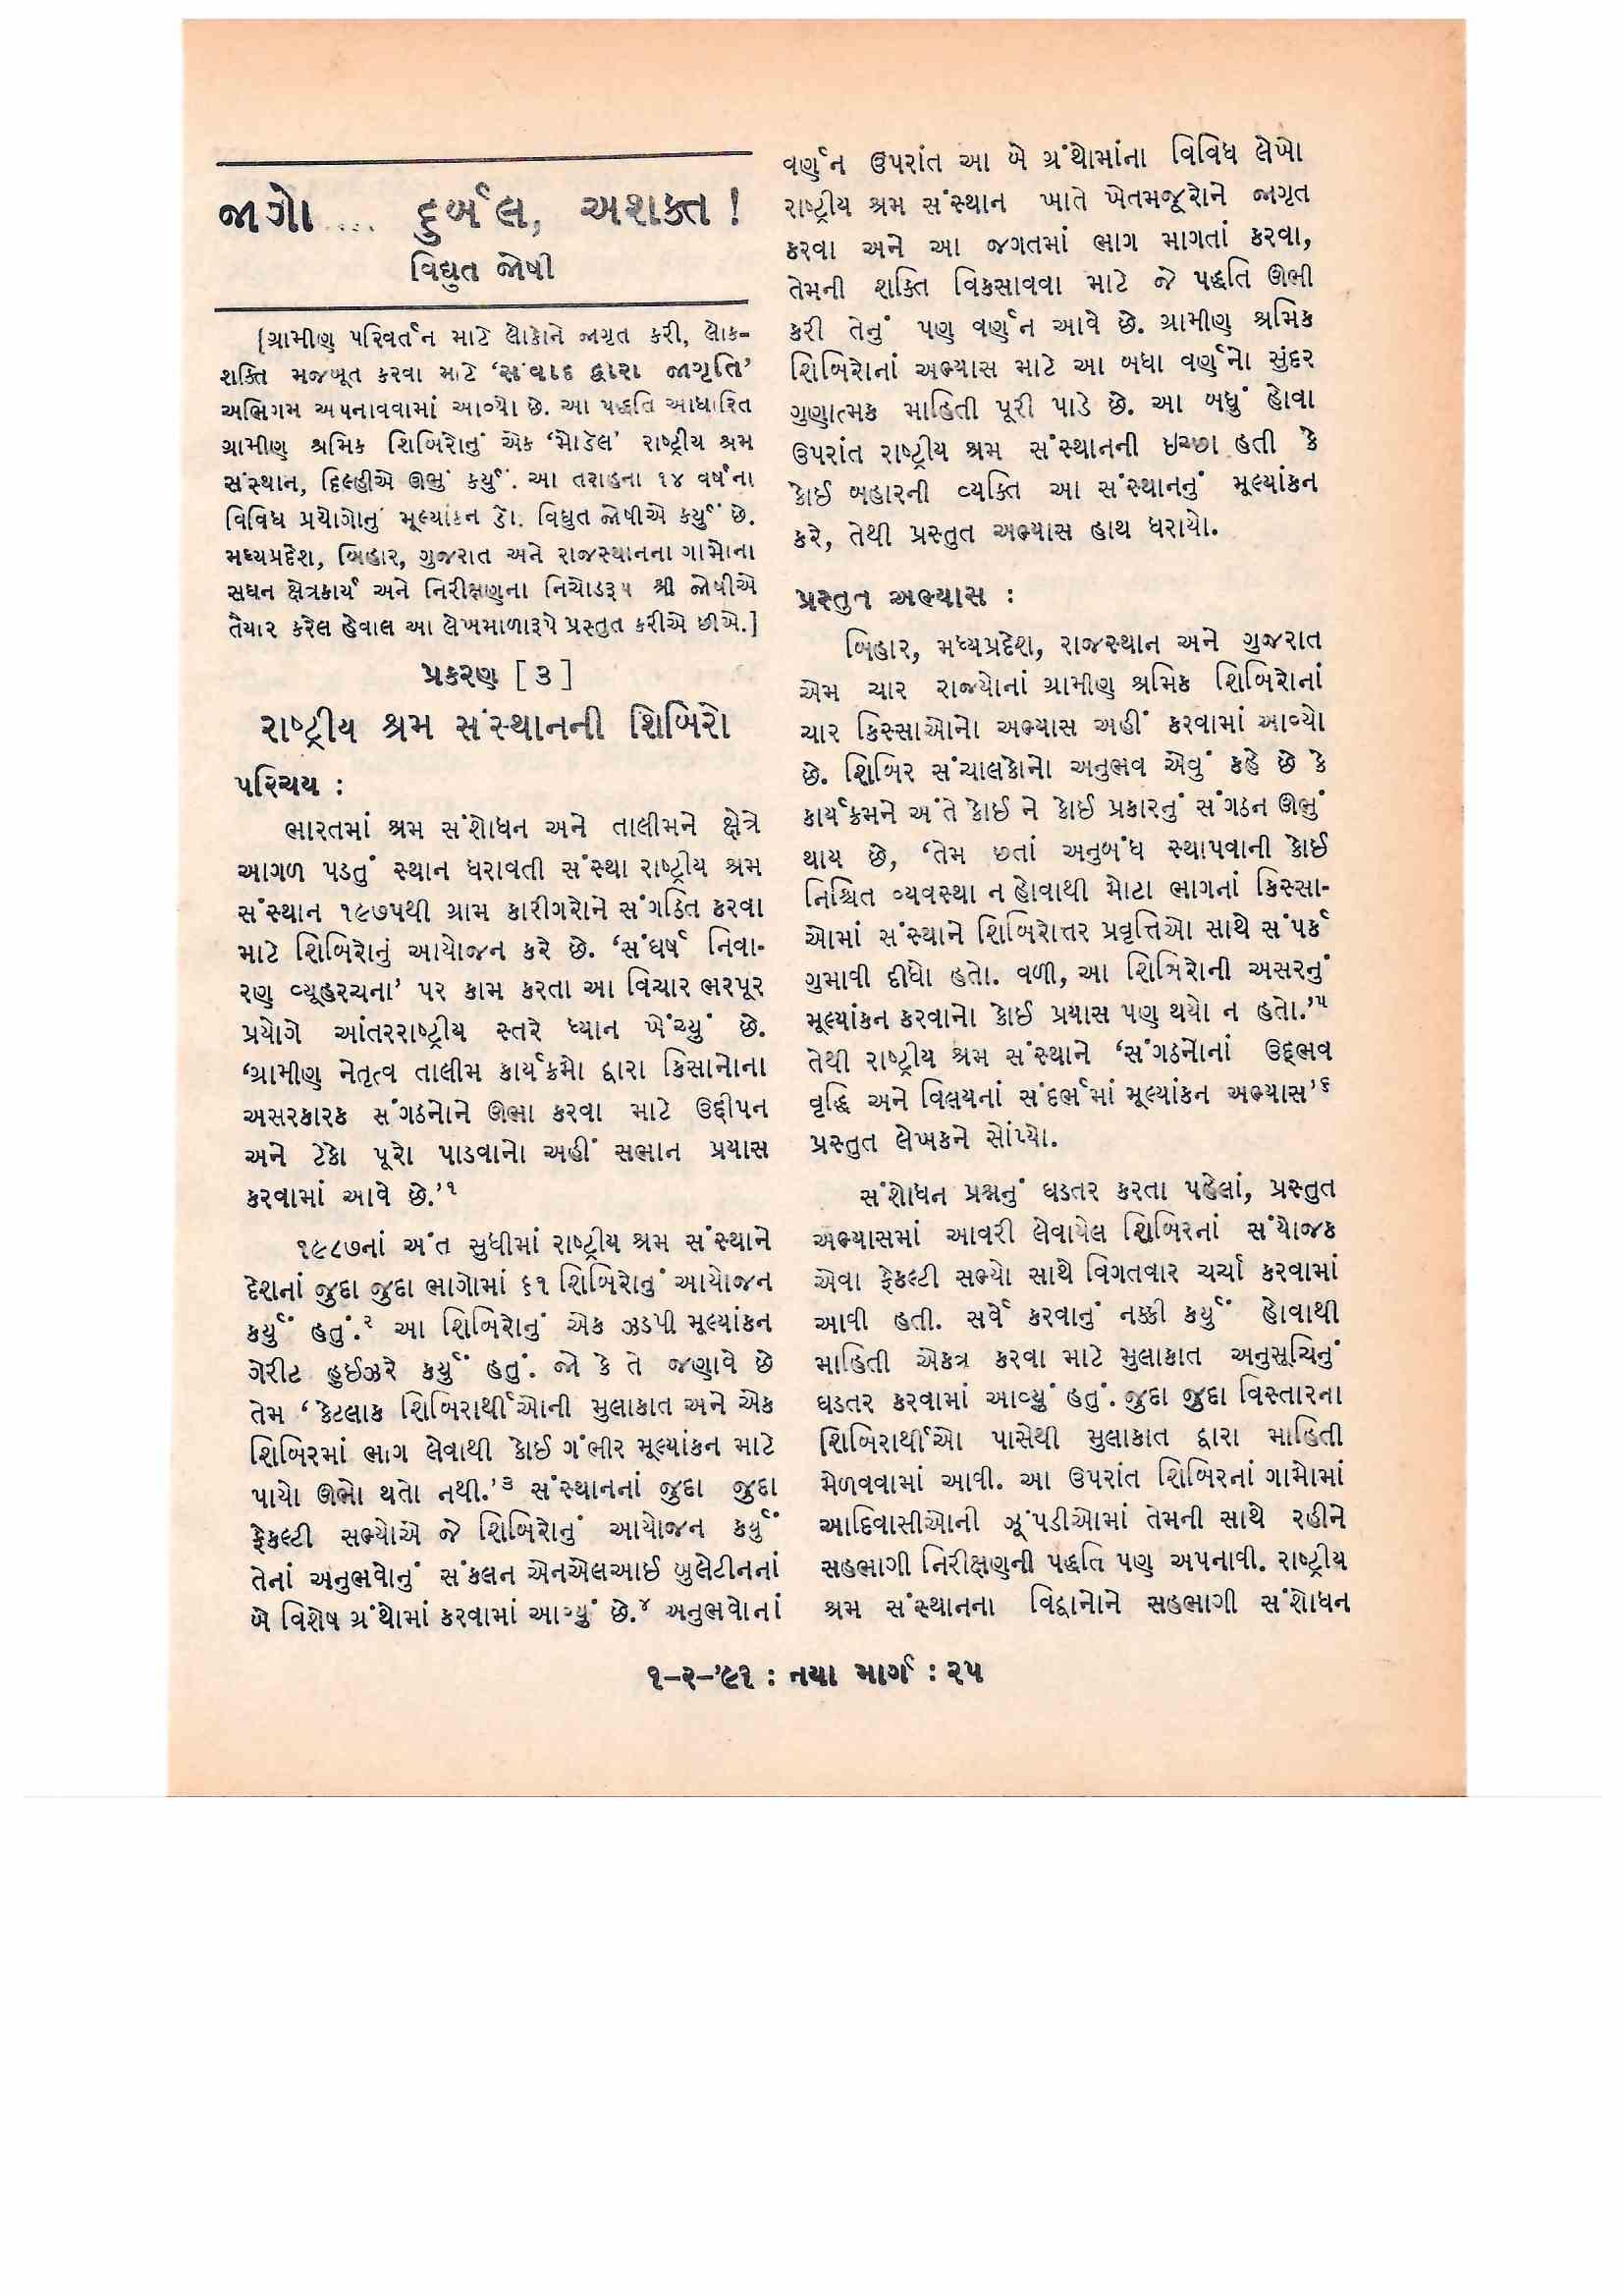 જાગો .... દુર્બલ, અશક્ત !
વિદ્યુત જોષી
[ગ્રામીણ પરિવર્તન માટે લોકોને જાગૃત કરી, લોક-
શક્તિ મજબૂત કરવા માટે ‘સંવાદ દ્વારા જાગૃતિ’
અભિગમ અપનાવવામાં આવ્યો છે. આ પદ્ધતિ આધારિત
ગ્રામીણ શ્રમિક શિબિરોનું એક ‘મોડેલ’ રાષ્ટ્રીય શ્રમ
સંસ્થાન, દિલ્હીએ ઊભું કર્યું. આ તરાહના ૧૪ વર્ષના
વિવિધ પ્રયોગોનું મૂલ્યાંકન ડો. વિદ્યુત જોષીએ કર્યું છે.
મધ્યપ્રદેશ, બિહાર, ગુજરાત અને રાજસ્થાનના ગામોના
સઘન ક્ષેત્રકાર્ય અને નિરીક્ષણના નિચોડરૂપ શ્રી જોષીએ
તૈયાર કરેલ હેવાલ આ લેખમાળારૂપે પ્રસ્તુત કરીએ છીએ.]
પ્રકરણ [ ૩ ]
રાષ્ટ્રીય શ્રમ સંસ્થાનની શિબિરો
પરિચય :
ભારતમાં શ્રમ સંશોધન અને તાલીમને ક્ષેત્રે
આગળ પડતું સ્થાન ધરાવતી સંસ્થા રાષ્ટ્રીય શ્રમ
સંસ્થાન ૧૯૭૫થી ગ્રામ કારીગરોને સંગઠિત કરવા
માટે શિબિરોનું આયોજન કરે છે. ‘સંઘર્ષ નિવા-
રણ વ્યૂહરચના’ પર કામ કરતા આ વિચાર ભરપૂર
પ્રયોગે આંતરરાષ્ટ્રીય સ્તરે ધ્યાન ખેંચ્યું છે.
‘ગ્રામીણ નેતૃત્વ તાલીમ કાર્યક્રમો દ્વારા કિસાનોના
અસરકારક સંગઠનોને ઊભા કરવા માટે ઉદ્દીપન
અને ટેકો પૂરો પાડવાનો અહીં સભાન પ્રયાસ
કરવામાં આવે છે.’૧
૧૯૮૭નાં અંત સુધીમાં રાષ્ટ્રીય શ્રમ સંસ્થાને
દેશનાં જુદા જુદા ભાગોમાં ૬૧ શિબિરોનું આયોજન
કર્યું હતું.૨ આ શિબિરોનું એક ઝડપી મૂલ્યાંકન
ગેરીટ હુઈઝરે કર્યું હતું. જો કે તે જણાવે છે
તેમ ‘કેટલાક શિબિરાર્થીઓની મુલાકાત અને એક
શિબિરમાં ભાગ લેવાથી કોઈ ગંભીર મૂલ્યાંકન માટે
પાયો ઊભો થતો નથી.’૩ સંસ્થાનનાં જુદા જુદા
ફેકલ્ટી સભ્યોએ જે શિબિરોનું આયોજન કર્યું
તેનાં અનુભવોનું સંકલન એનએલઆઈ બુલેટીનનાં
બે વિશેષ ગ્રંથોમાં કરવામાં આવ્યું છે.૪ અનુભવોનાં
વર્ણન ઉપરાંત આ બે ગ્રંથોમાંના વિવિધ લેખો
રાષ્ટ્રીય શ્રમ સંસ્થાન ખાતે ખેતમજૂરોને જાગૃત
કરવા અને આ જગતમાં ભાગ માગતાં કરવા,
તેમની શક્તિ વિકસાવવા માટે જે પદ્ધતિ ઊભી
કરી તેનું પણ વર્ણન આવે છે. ગ્રામીણ શ્રમિક
શિબિરોનાં અભ્યાસ માટે આ બધા વર્ણનો સુંદર
ગુણાત્મક માહિતી પૂરી પાડે છે. આ બધું હોવા
ઉપરાંત રાષ્ટ્રીય શ્રમ સંસ્થાનની ઇચ્છા હતી કે
કોઈ બહારની વ્યક્તિ આ સંસ્થાનનું મૂલ્યાંકન
કરે, તેથી પ્રસ્તુત અભ્યાસ હાથ ધરાયો.
પ્રસ્તુત અભ્યાસ :
બિહાર, મધ્યપ્રદેશ, રાજસ્થાન અને ગુજરાત
એમ ચાર રાજ્યોનાં ગ્રામીણ શ્રમિક શિબિરોનાં
ચાર કિસ્સાઓનો અભ્યાસ અહીં કરવામાં આવ્યો
છે. શિબિર સંચાલકોનો અનુભવ એવું કહે છે કે
કાર્યક્રમને અંતે કોઈ ને કોઈ પ્રકારનું સંગઠન ઊભું
થાય છે, ‘તેમ છતાં અનુબંધ સ્થાપવાની કોઈ
નિશ્ચિત વ્યવસ્થા ન હોવાથી મોટા ભાગનાં કિસ્સા-
ઓમાં સંસ્થાને શિબિરોત્તર પ્રવૃત્તિઓ સાથે સંપર્ક
ગુમાવી દીધો હતો. વળી, આ શિબિરોની અસરનું
મૂલ્યાંકન કરવાનો કોઈ પ્રયાસ પણ થયો ન હતો.’૫
તેથી રાષ્ટ્રીય શ્રમ સંસ્થાને ‘સંગઠનોનાં ઉદ્‌ભવ
વૃદ્ધિ અને વિલયનાં સંદર્ભમાં મૂલ્યાંકન અભ્યાસ’૬
પ્રસ્તુત લેખકને સોંપ્યો.
સંશોધન પ્રશ્નનું ઘડતર કરતા પહેલાં, પ્રસ્તુત
અભ્યાસમાં આવરી લેવાયેલ શિબિરનાં સંયોજક
એવા ફેકલ્ટી સભ્યો સાથે વિગતવાર ચર્ચા કરવામાં
આવી હતી. સર્વે કરવાનું નક્કી કર્યું હોવાથી
માહિતી એકત્ર કરવા માટે મુલાકાત અનુસૂચિનું
ઘડતર કરવામાં આવ્યું હતું. જુદા જુદા વિસ્તારના
શિબિરાર્થીઓ પાસેથી મુલાકાત દ્વારા માહિતી
મેળવવામાં આવી. આ ઉપરાંત શિબિરનાં ગામોમાં
આદિવાસીઓની ઝૂંપડીઓમાં તેમની સાથે રહીને
સહભાગી નિરીક્ષણની પદ્ધતિ પણ અપનાવી. રાષ્ટ્રીય
શ્રમ સંસ્થાનના વિદ્વાનોને સહભાગી સંશોધન
૧–૨–’૯૧ : નયા માર્ગ : ૨૫